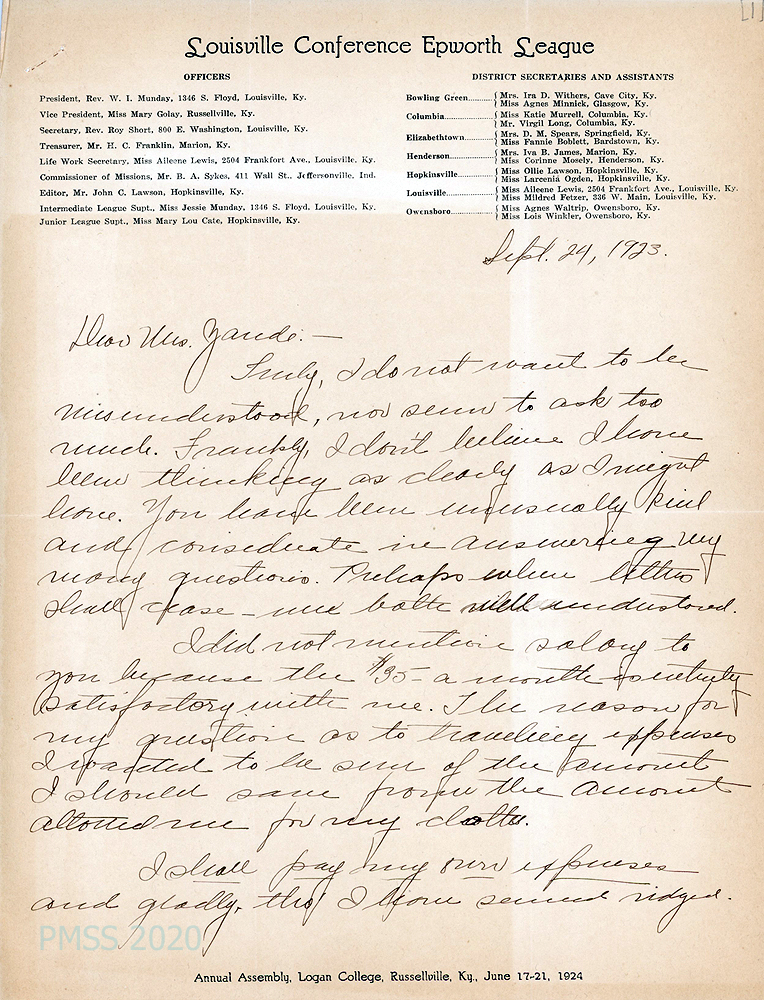 [1]
Louisville Conference Epworth League
OFFICERS
President, Rev. W. I. Munday, 1346 S. Floyd, Louisville, Ky.
Vice President, Miss Mary Golay, Russellville, Ky.
Secretary, Rev. Roy Short, 800 E. Washington, Louisville, Ky.
Treasurer, Mr. H. C. Franklin, Marion, Ky.
Life Work Secretary, Miss Aileene Lewis, 2504 Frankfort Ave., Louisville, Ky.
Commissioner of Missions, Mr. B. A. Sykes, 411 Wall St., Jeffersonville, Ind.
Editor, Mr. John C. Lawson, Hopkinsville, Ky.
Intermediate League Supt., Miss Jessie Munday, 1346 S. Floyd, Louisville, Ky.
Junior League Supt., Miss Mary Lou Cate, Hopkinsville, Ky.
DISTRICT SECRETARIES AND ASSISTANTS
Bowling Green.........{ Mrs. Ira D. Withers, Cave City, Ky.
Miss Agnes Minnick, Glasgow, Ky.
Columbia..................{ Miss Katie Murrell, Columbia, Ky.
Mr. Virgil Long, Columbia, Ky.
Elizabethtown..........{ Mrs. D. M. Spears, Springfield, Ky.
Miss Fannie Boblett, Bardstown, Ky.
Henderson...............{ Mrs. Iva B. James, Marion, Ky.
Miss Corinne Mosely, Henderson, Ky.
Hopkinsville.............{ Miss Ollie Lawson, Hopkinsville, Ky.
Miss Larcenia Ogden, Hopkinsville, Ky.
Louisville.................{ Miss Aileene Lewis, 2504 Frankfort Ave., Louisville, Ky.
Miss Mildred Fetzer, 336 W. Main, Louisville, Ky.
Owensboro...............{ Miss Agnes Waltrip, Owensboro, Ky.
Miss Lois Winkler, Owensboro, Ky.
Sept. 24, 1923.
Dear Mrs. Zande:—
Truly, I do not want to be
misunderstood, nor seem to ask too
much. Frankly, I don't believe I have
been thinking as clearly as I might
have. You have been unusually kind
and considerate in answering my
many questions. Perhaps when letters
shall cease – we both will understand.
I did not mention salary to
you because the $35– a month is entirely
satisfactory with me. The reason for
my question as to traveling expenses
I wanted to be sure of the amount
I should save from the amount
allotted me for my clothes.
I shall pay my own expenses
and gladly, tho' I have seemed ridged.
PMSS 2020
Annual Assembly, Logan College, Russellville, Ky., June 17-21, 1924